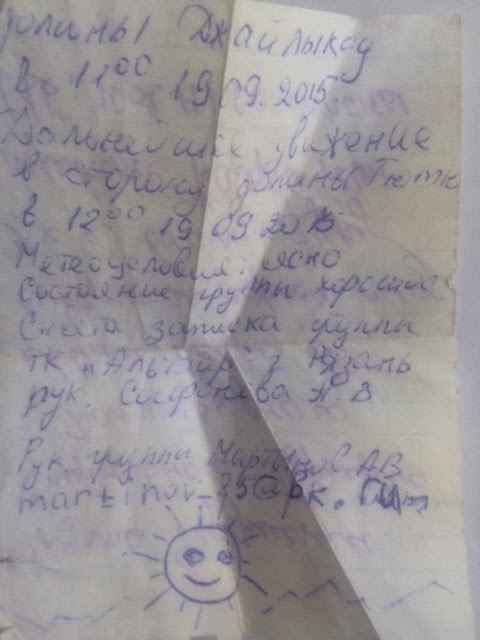 долины Джайлыксу
в 11⁰⁰ 19.09.2015.
Дальнейшее движение
в сторону долины
в 12⁰⁰ 19 09 2015
Метеоусловия: ясно
Состояние группы хорошее
Снята записка группы
тк "Альтаир" г Рязань
рук. Сафонова А. В
Рук. группы Мартынов АВ